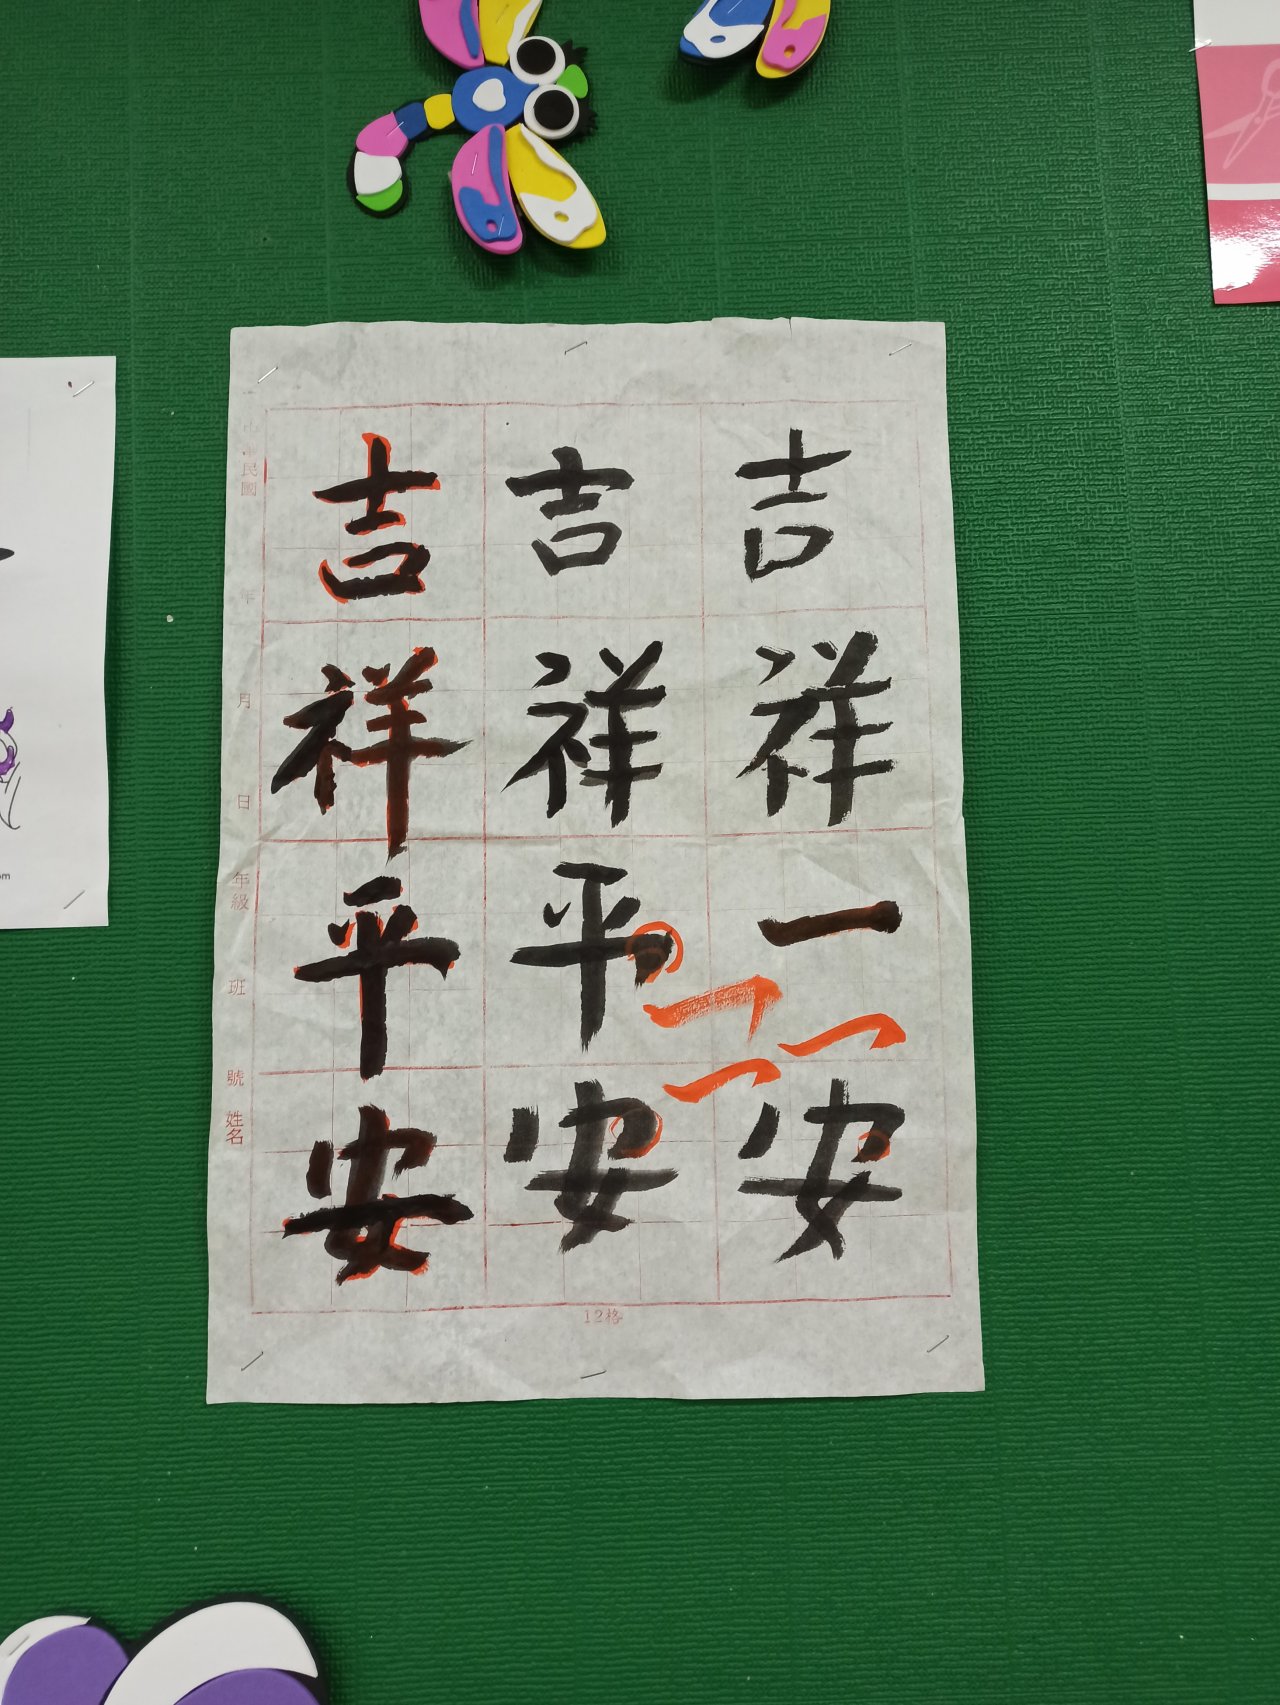 吉祥一安
吉祥平安
吉祥平安
中華民國 年 月 日 年級 班 號 姓名
12格